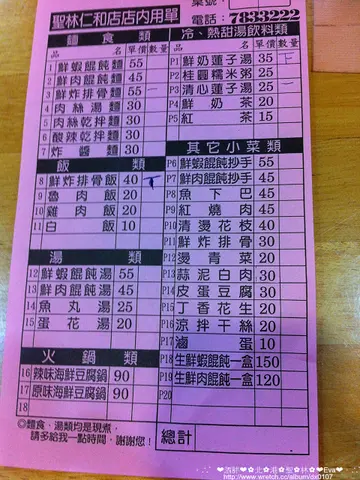 桌號:
聖林仁和店店內用單
電話:7833222
麵食類
品名 單價 數量
1 鮮蝦餛飩麵 55
2 鮮肉餛飩麵 45
3 鮮炸排骨麵 55 一
4 肉絲湯麵 30
5 肉絲乾拌麵 30
6 酸辣乾拌麵 30
7 炸醬麵 30
飯類
8 鮮炸排骨飯 40
9 魯肉飯 20
10 雞肉飯 20
11 白飯 10
湯類
12 鮮蝦餛飩湯 55
13 鮮肉餛飩湯 45
14 魚丸湯 25
15 蛋花湯 20
火鍋類
16 辣味海鮮豆腐鍋 90
17 原味海鮮豆腐鍋 90
18
◎麵食、湯類均是現煮,
請多給我一點時間,謝謝您!
冷、熱甜湯飲料類
品名 單價 數量
P1 鮮奶蓮子湯 35
P2 桂圓糯米粥 25
P3 清心蓮子湯 25 一
P4 鮮奶茶 20
P5 紅茶 15
其它小菜類
P6 鮮蝦餛飩抄手 55
P7 鮮肉餛飩抄手 45
P8 魚下巴 45
P9 紅燒肉 45
P10 清燙花枝 40
P11 鮮炸排骨 30
P12 燙青菜 20
P13 蒜泥白肉 30
P14 皮蛋豆腐 30
P15 丁香花生 20
P16 涼拌干絲 20
P17 滷蛋 10
P18 生鮮蝦餛飩一盒 150
P19 生鮮肉餛飩一盒 120
P20
總計
酒肺❤✿北✿港✿聖✿林✿❤❤Eva❤
http://www.wretch.cc/album/dx0107